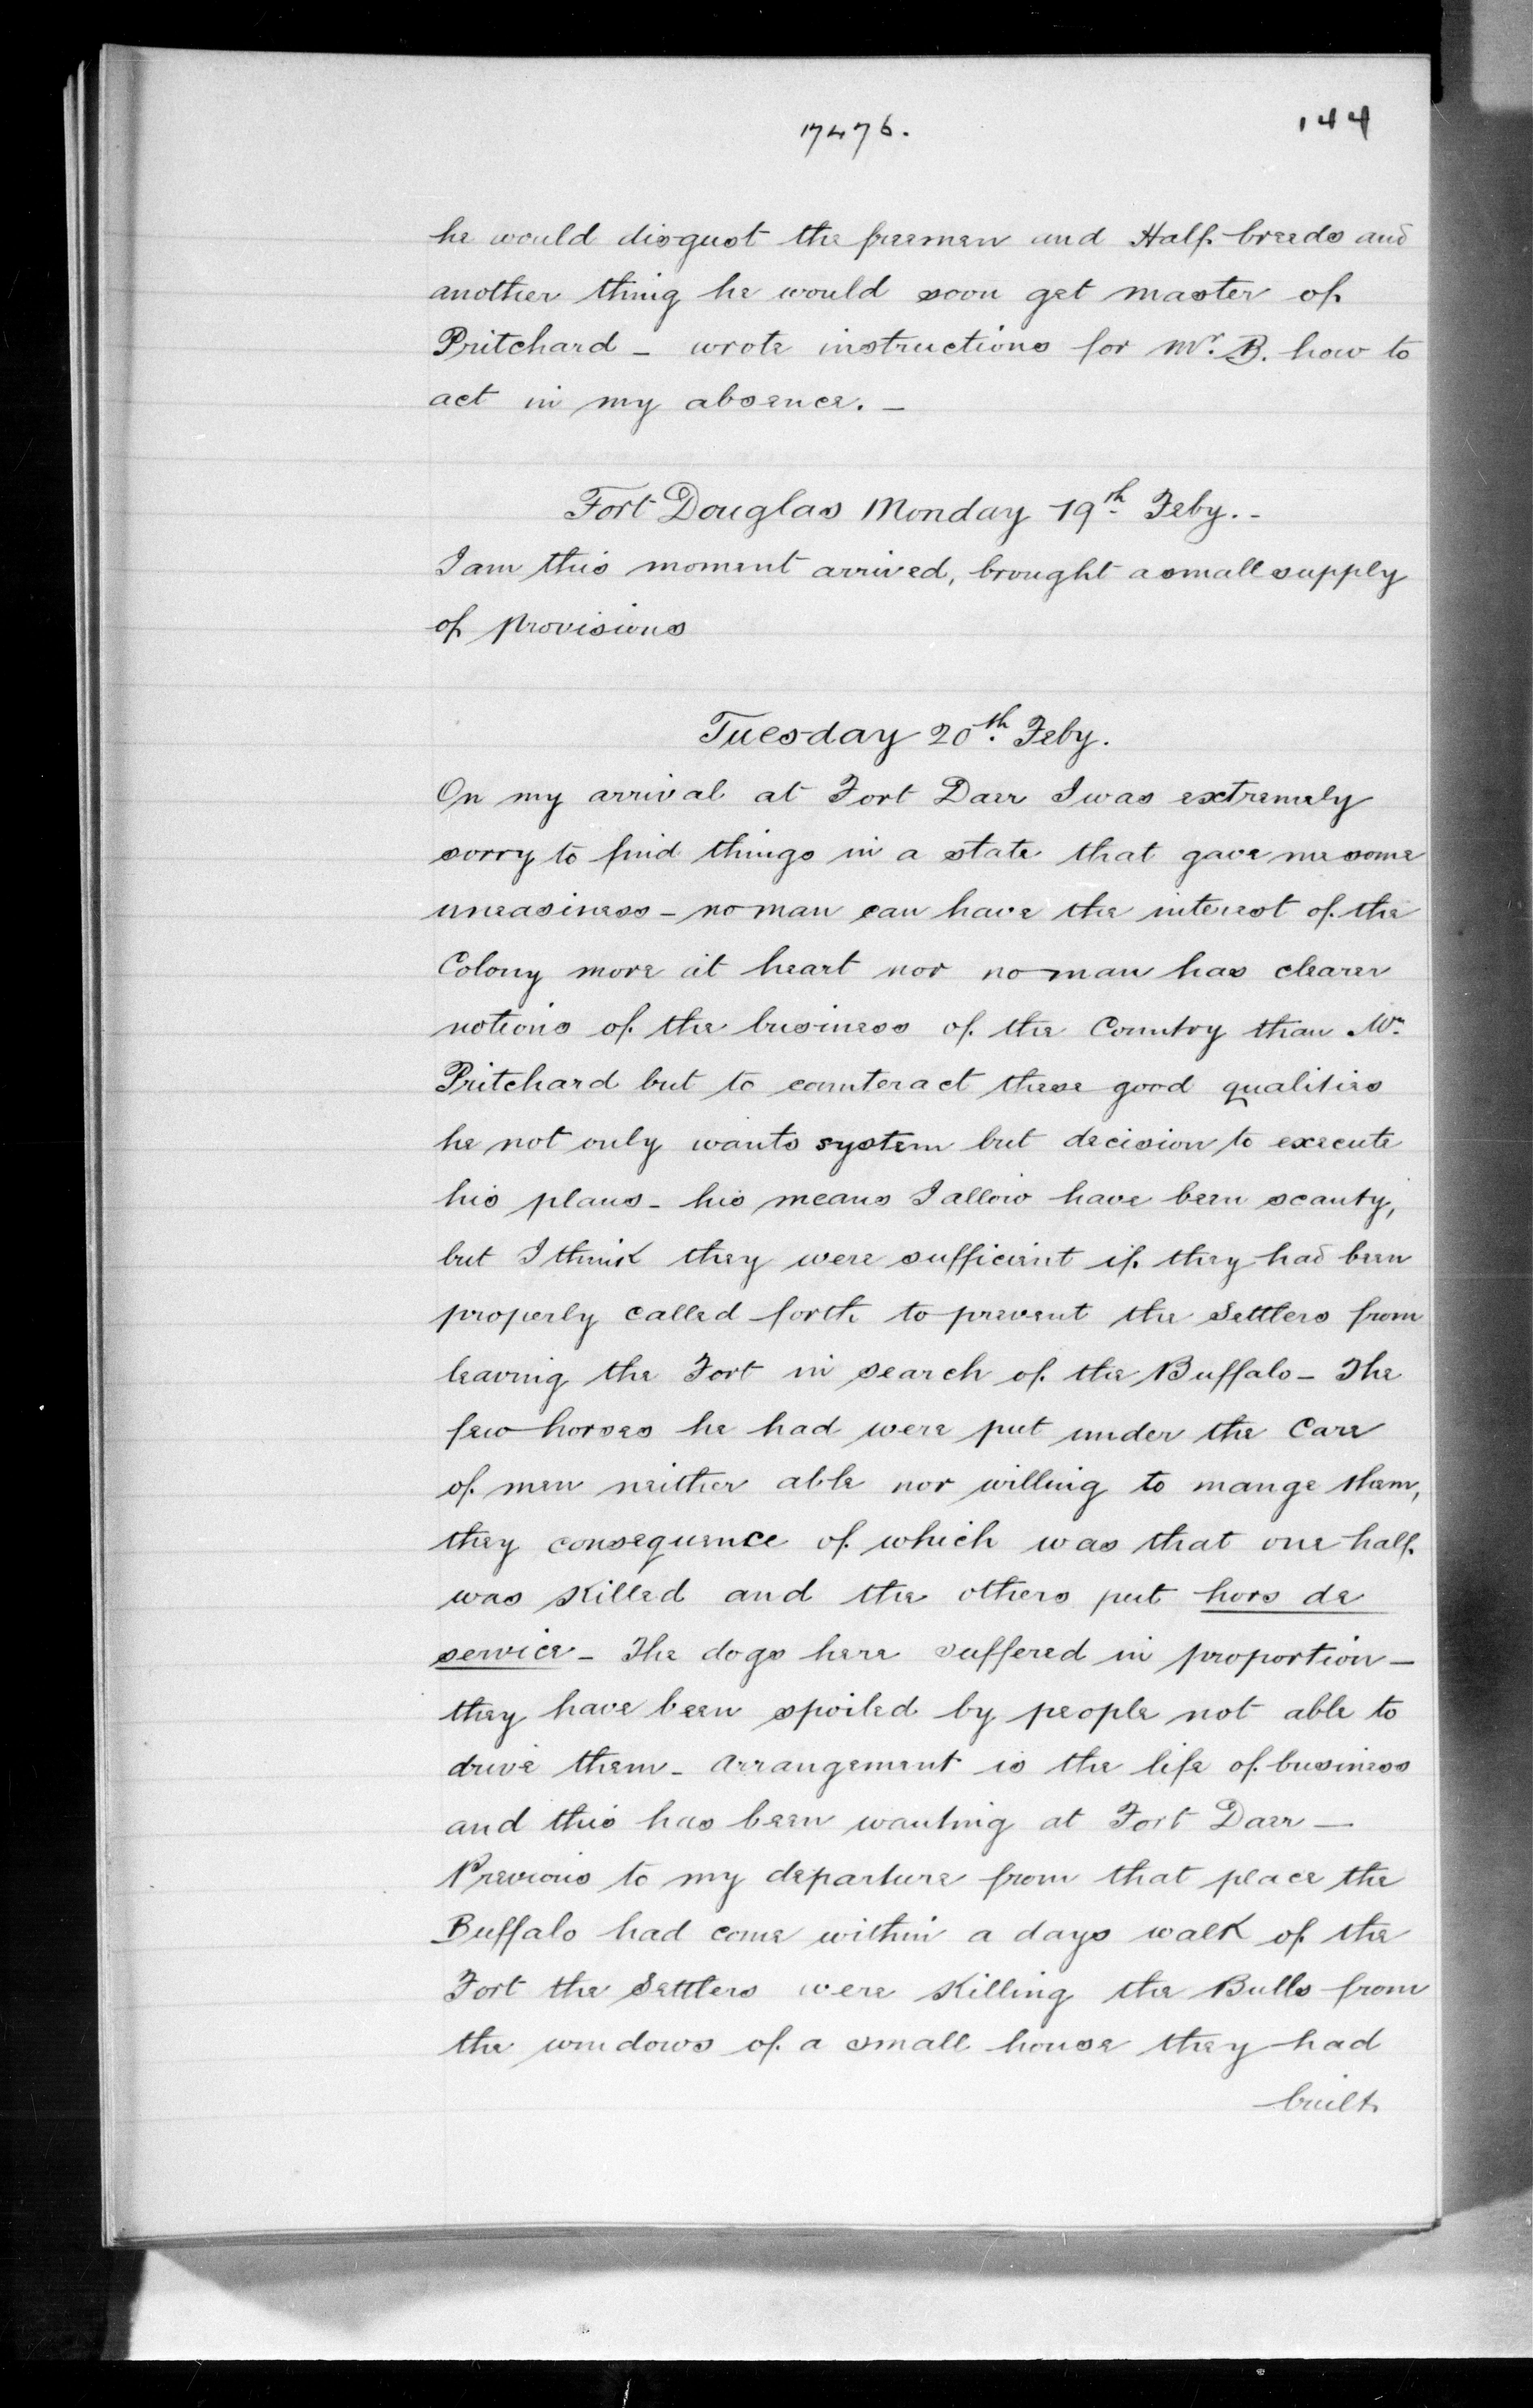 17476.
144
he would disgust the freemen and Half-breeds and
another thing he would soon get master of
Pritchard - wrote instructions for Mr. B. how to
act in my absence. -
Fort Douglas Monday 19th. Feby. -
I am this moment arrived, brought a small supply
of provisions
Tuesday 20th. Feby.
On my arrival at Fort Daer I was extremely
sorry to find things in a state that gave me some
uneasiness - no man can have the interest of the
Colony more at heart nor no man has clearer
notions of the business of the Country than Mr.
Pritchard but to counteract these good qualities
he not only wants system but decision to execute
his plans - his means I allow have been scanty,
but I think they were sufficient if they had been
properly called forth to prevent the Settlers from
leaving the Fort in search of the Buffalo - The
few horses he had were put under the Care
of men neither able nor willing to mange them,
they consequence of which was that one half
was killed and the others put hors de
service - The dogs here suffered in proportion -
they have been spoiled by people not able to
drive them - Arrangement is the life of business
and this has been wanting at Fort Daer -
Previous to my departure from that place the
Buffalo had come within a days walk of the
Fort the Settlers were killing the Bulls from
the windows of a small house they had
built